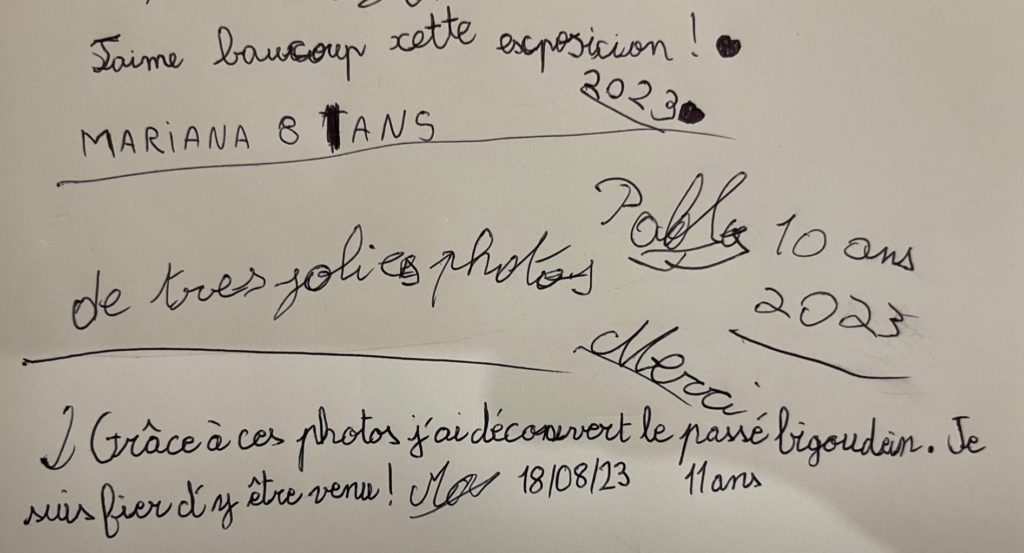 J'aime baucoup cette exposicion !
2023
MARIANA 8 ANS
Pablo 10 ans
de tres jolies photos
2023
Merci
Grâce à ces photos j'ai découvert le passé bigouden. Je
suis fier d'y être venu ! 18/08/23 11 ans